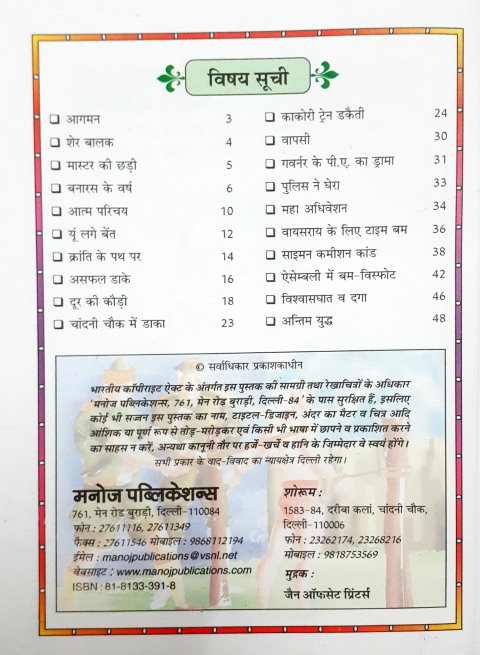 विषय सूची
❑ आगमन 3
❑ शेर बालक 4
❑ मास्टर की छड़ी 5
❑ बनारस के वर्ष 6
❑ आत्म परिचय 10
❑ यूं लगे बेंत 12
❑ क्रांति के पथ पर 14
❑ असफल डाके 16
❑ दूर की कौड़ी 18
❑ चांदनी चौक में डाका 23
❑ काकोरी ट्रेन डकैती 24
❑ वापसी 30
❑ गवर्नर के पी.ए. का ड्रामा 31
❑ पुलिस ने घेरा 33
❑ महा अधिवेशन 34
❑ वायसराय के लिए टाइम बम 36
❑ साइमन कमीशन कांड 38
❑ ऐसेम्बली में बम-विस्फोट 42
❑ विश्वासघात व दगा 46
❑ अन्तिम युद्ध 48
© सर्वाधिकार प्रकाशकाधीन
भारतीय कॉपीराइट ऐक्ट के अंतर्गत इस पुस्तक की सामग्री तथा रेखाचित्रों के अधिकार
'मनोज पब्लिकेशन्स, 761, मेन रोड बुराड़ी, दिल्ली-84' के पास सुरक्षित हैं, इसलिए
कोई भी सज्जन इस पुस्तक का नाम, टाइटल-डिजाइन, अंदर का मैटर व चित्र आदि
आंशिक या पूर्ण रूप से तोड़-मरोड़कर एवं किसी भी भाषा में छापने व प्रकाशित करने
का साहस न करें, अन्यथा कानूनी तौर पर हर्जे-खर्चे व हानि के जिम्मेदार वे स्वयं होंगे।
सभी प्रकार के वाद-विवाद का न्यायक्षेत्र दिल्ली रहेगा।
मनोज पब्लिकेशन्स
761, मेन रोड बुराड़ी, दिल्ली-110084
फोन : 27611116, 27611349
फैक्स : 27611546 मोबाइल : 9868112194
ईमेल : manojpublications@vsnl.net
वेबसाइट : www.manojpublications.com
ISBN : 81-8133-391-8
शोरूम :
1583-84, दरीबा कलां, चांदनी चौक,
दिल्ली-110006
फोन : 23262174, 23268216
मोबाइल : 9818753569
मुद्रक :
जैन ऑफसेट प्रिंटर्स